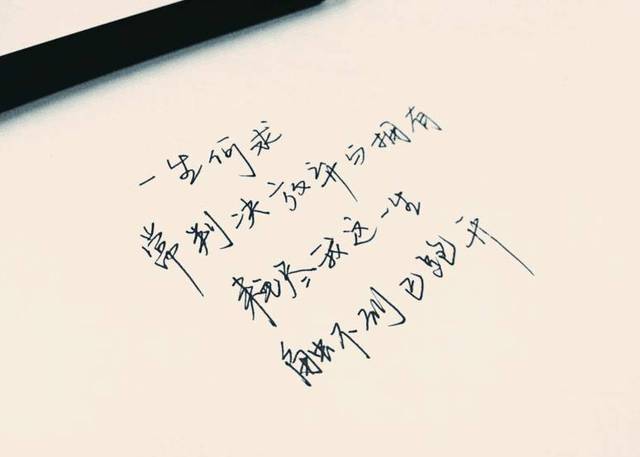 一生何求
常判决放弃与拥有
耗尽我这一生
触不到已跑开